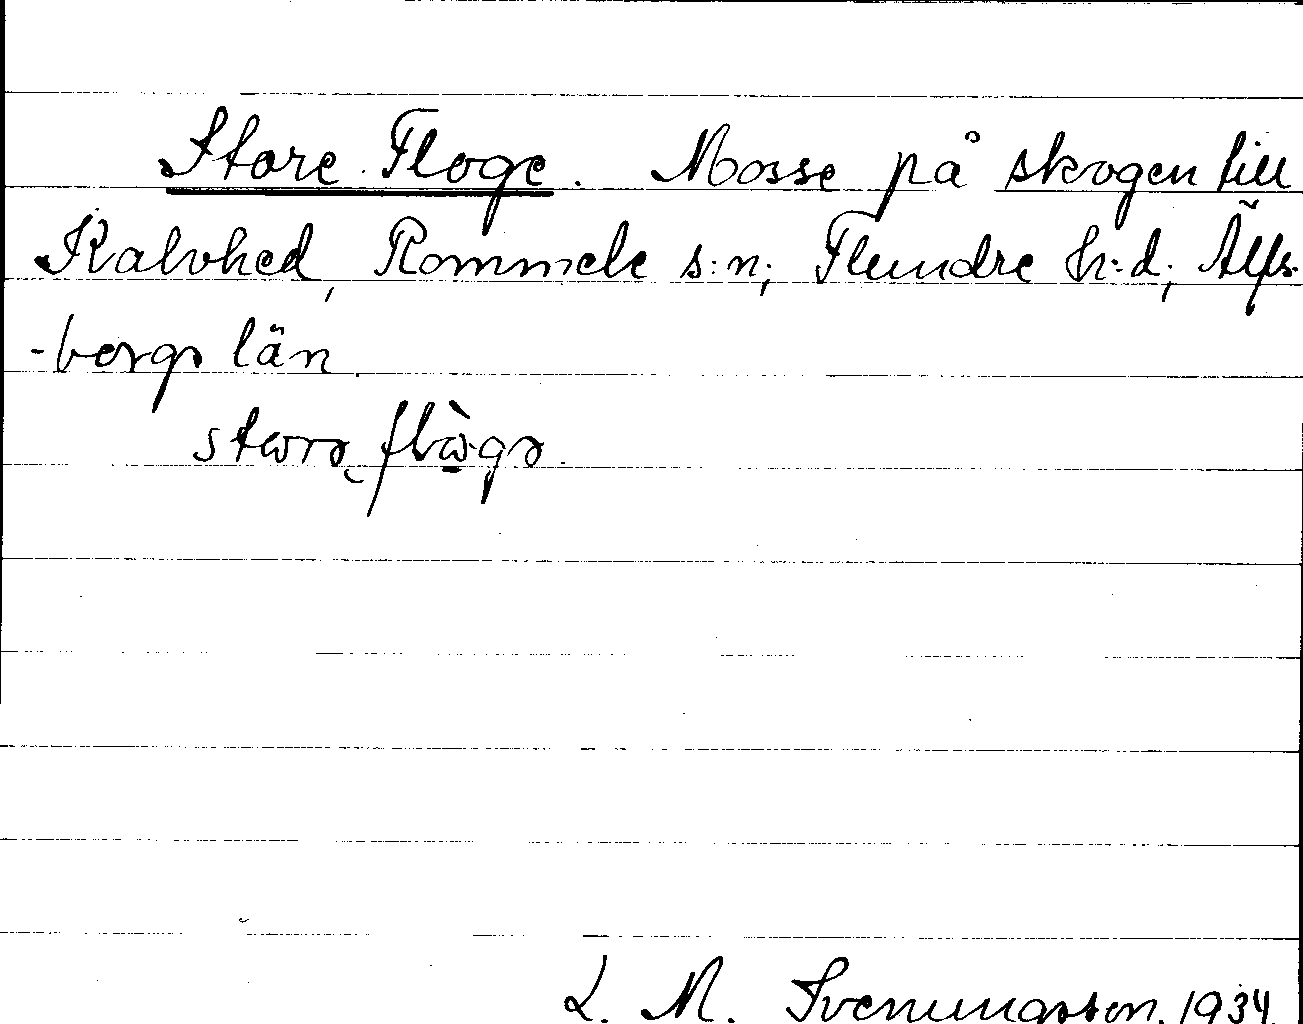 Store Floge. Mosse på skogen till
Kalvhed, Rommele s:n; Flundre h:d; Älfs-
-borgs län.
L. M. Svenungsson. 1934